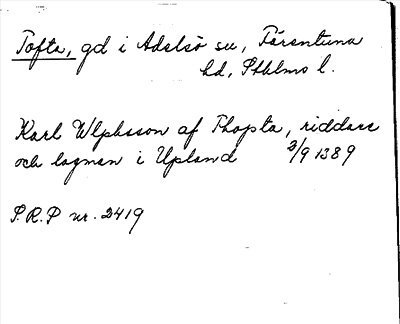 Tofta, gd i Adelsö sn, Färentuna
hd, Sthlms l.
Karl Wlphsson af Thopta, riddare
och lagman i Upland 3/9 1389
S.R.P nr. 2419